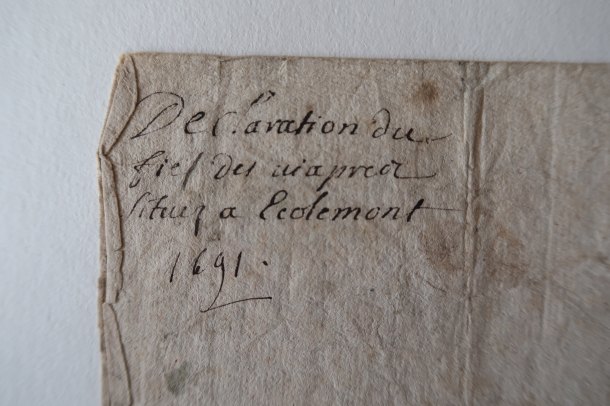 Declaration du
fief des viaprez
situez a Ecolemont
1691.